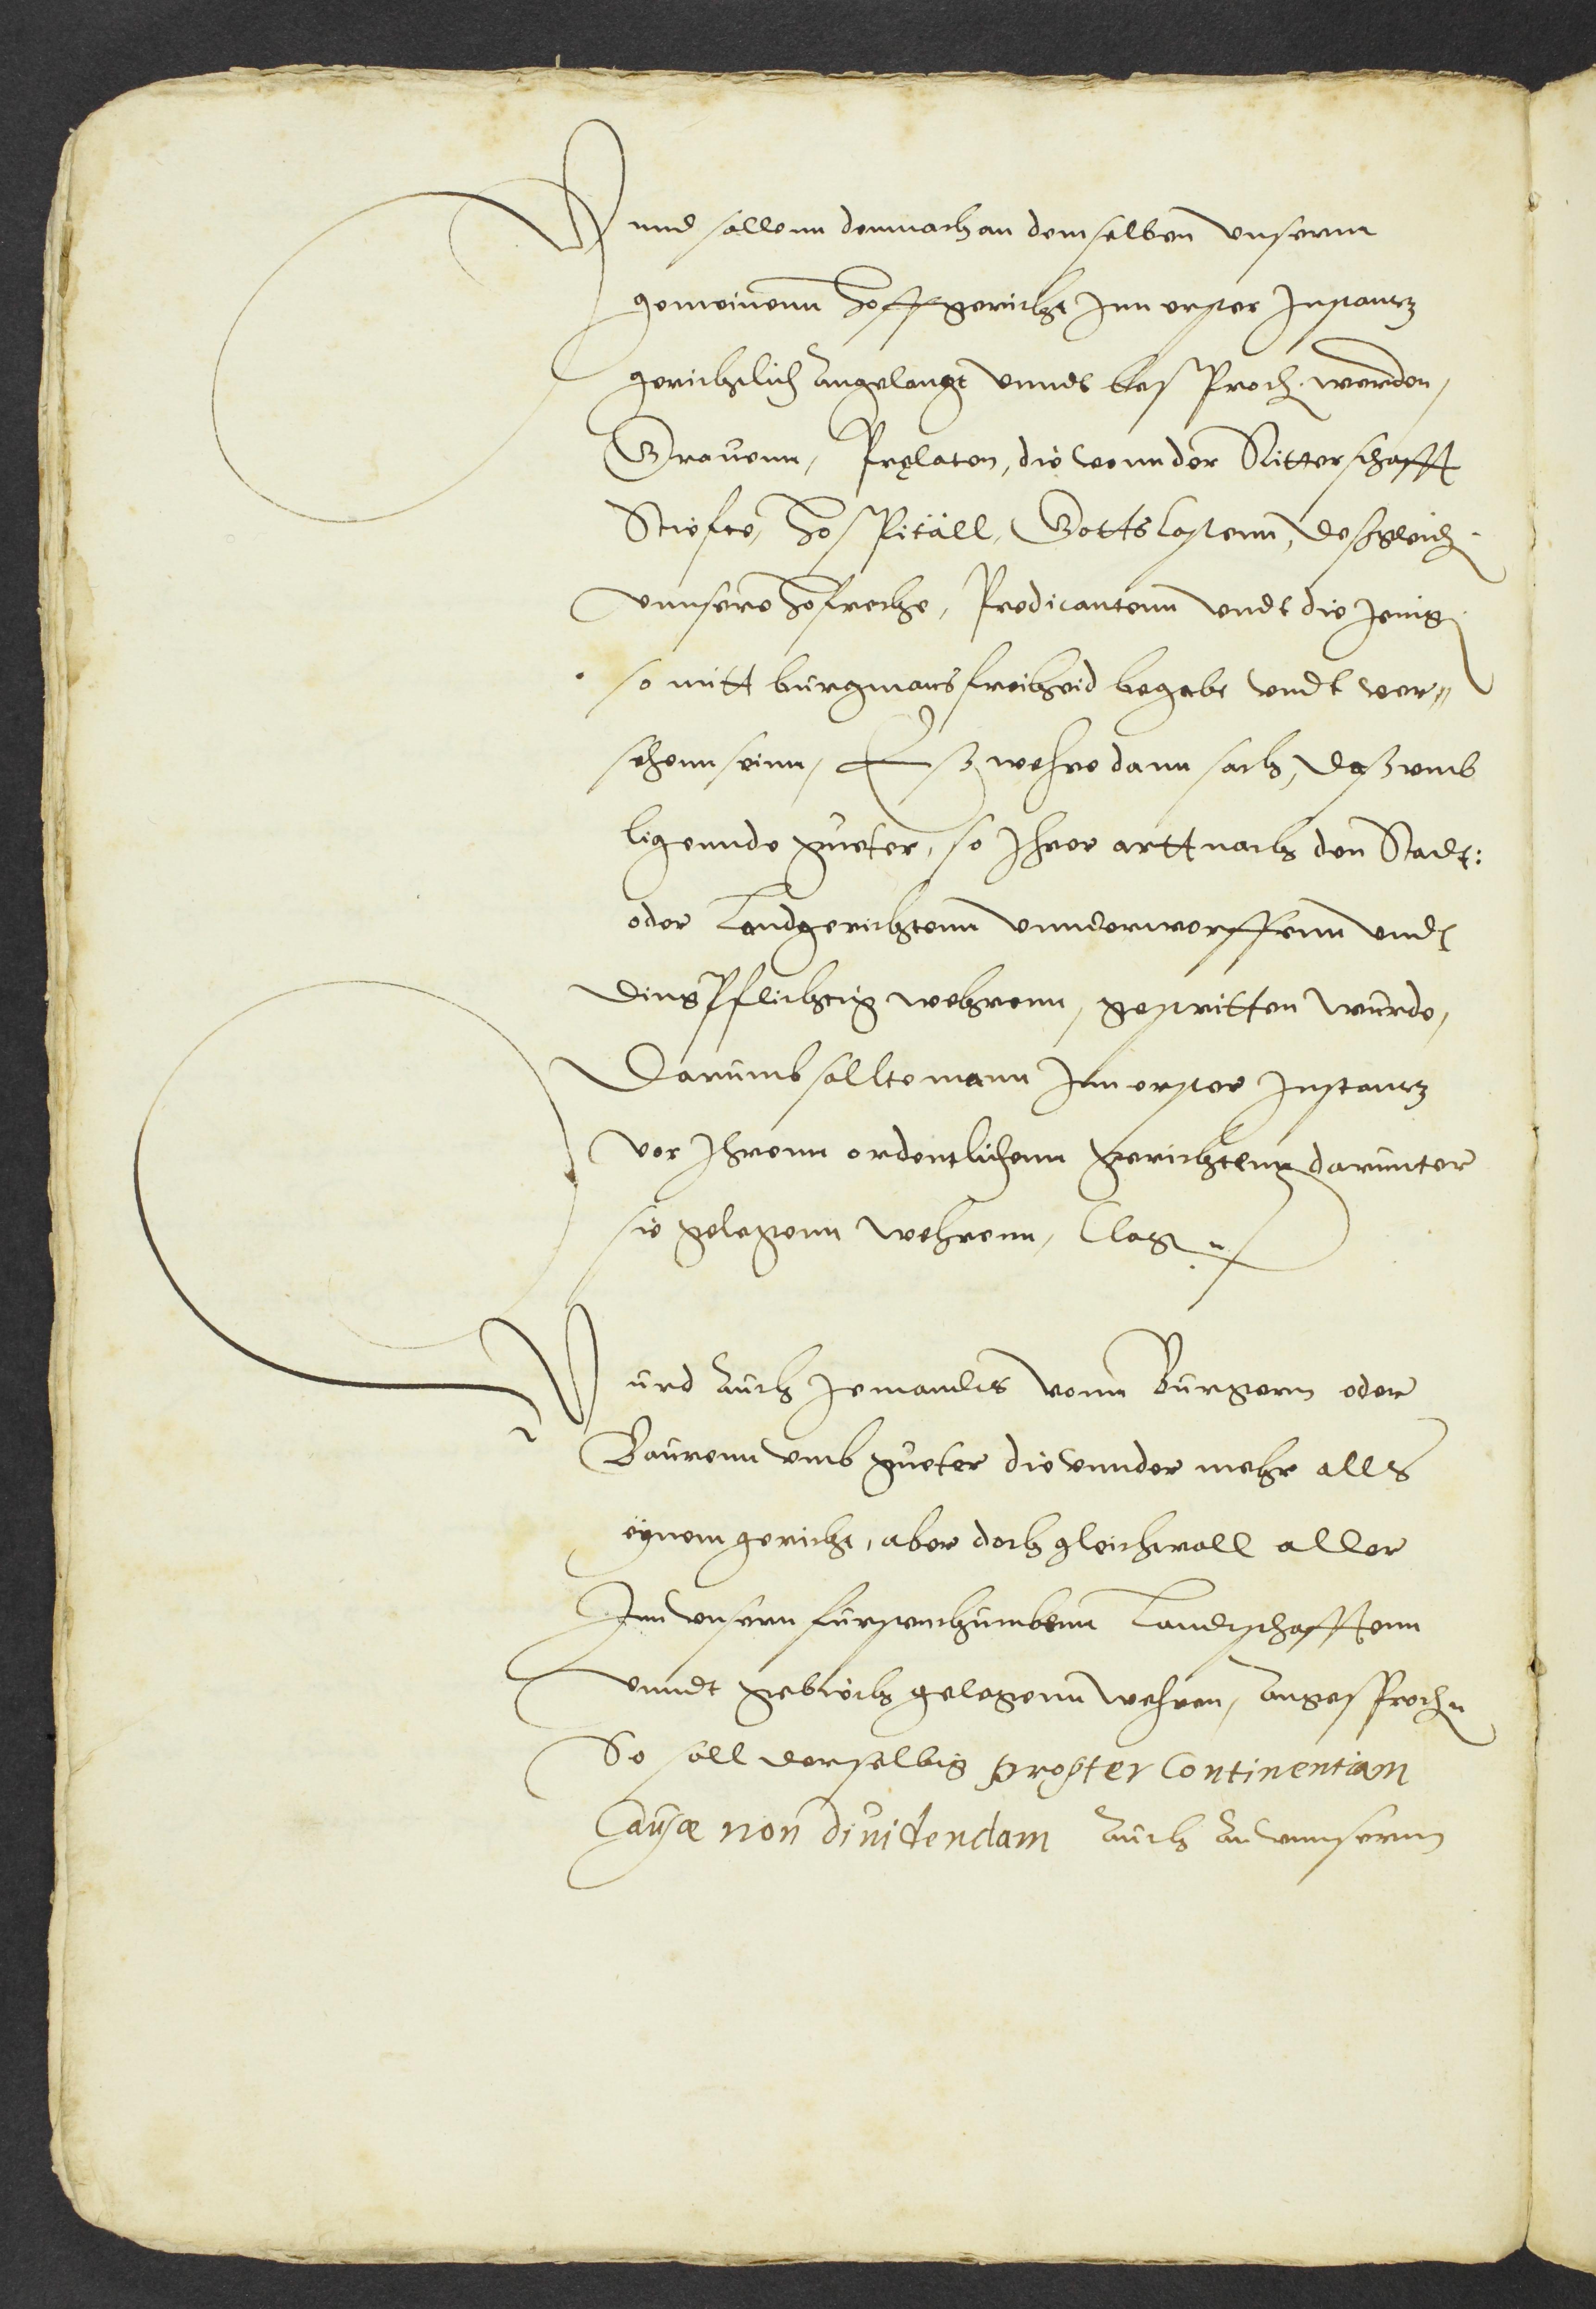 Vnnd sollenn demnach an demselben vnserm
gemeinenn Hoffgericht Inn erster Instantz
gerichtlich Angelangt vnndt besproch. werden,
Grauenn, Pręlaten, die vonn der Ritterschafft
Stiefte, Hospitäll, Gotts Castenn, deßgleich.
vnnsere Hofrethe, Predicantenn vndt die Jenig.
so mitt burgmans freiheid begabt vndt ver„
sehenn seinn, Eß wehre dann sach, daß vmb
ligennde gueter, so Ihrer artt nach den Stadt:
oder Landgerichtenn vnnderworffenn vndt
dingpflichtig wehrenn, gestritten wurde,
Darumb sollte mann Inn erster Instantz
vor Ihrenn ordentlichenn gerichtenn darunter
sie gelegenn wehrenn, Clagn
Wurd Auch Jemandts vonn Burgern oder
Baurenn vmb gueter die vnnder mehr alls
eynem gericht, aber doch gleichwoll aller
Inn vnsern furstenthumbenn Landtschafftenn
vnndt gebieth gelegenn wehren, Angesprochn
So soll derselbig propter Continentiam
Causæ non diuidendam Auch An vnnserm